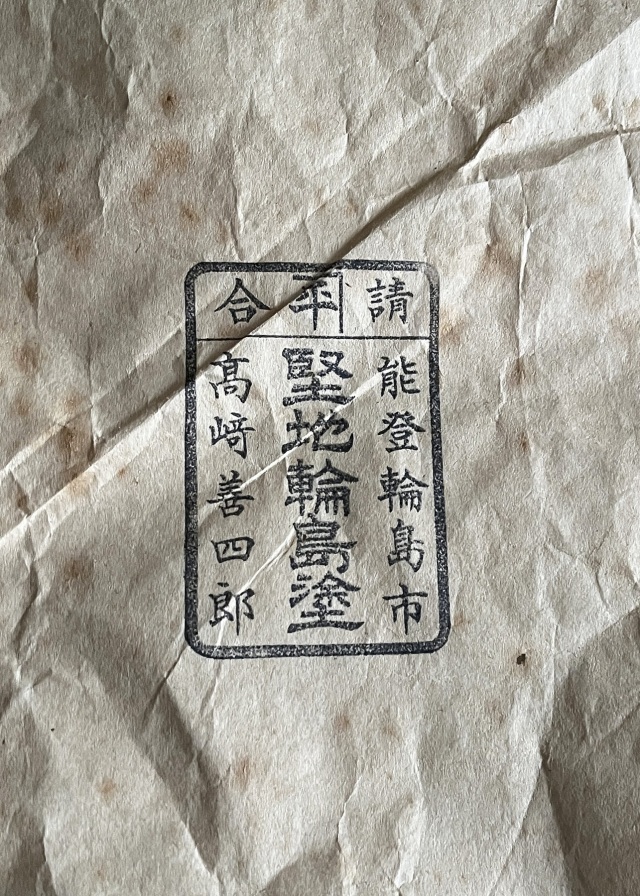 請合
能登輪島市
堅地輪島塗
髙﨑善四郎